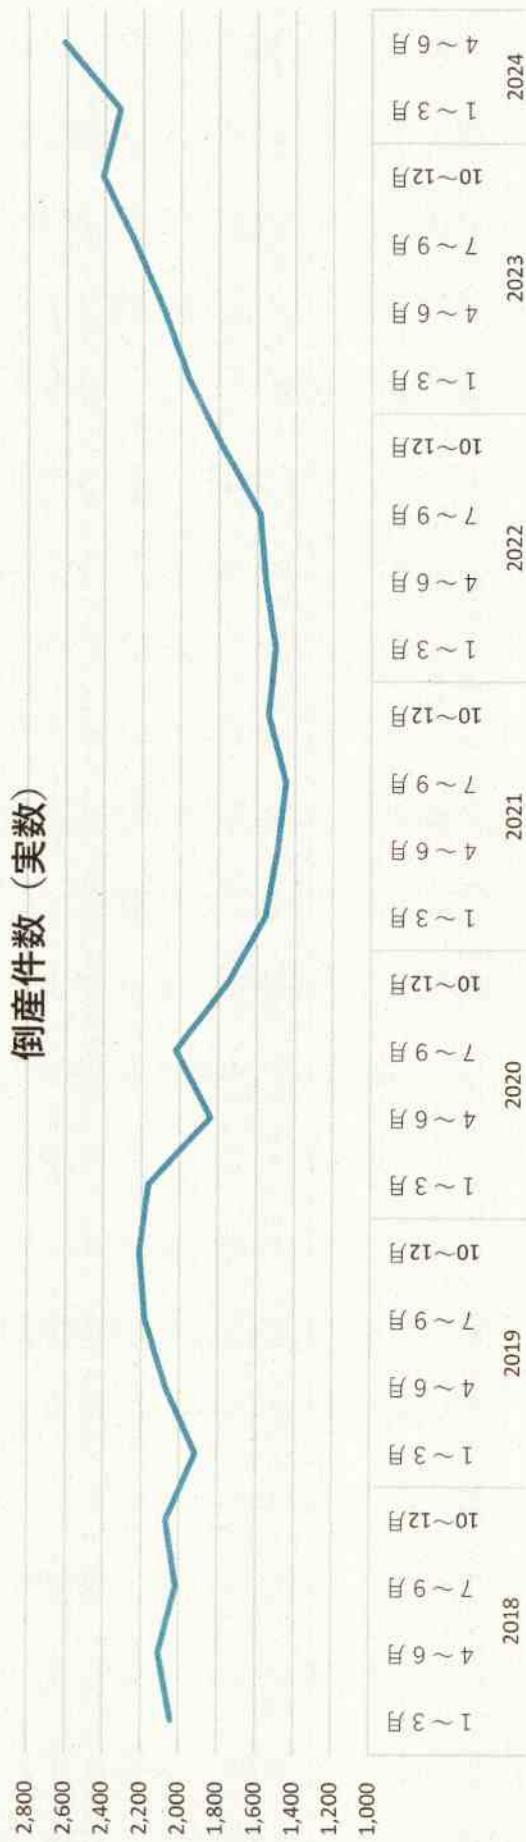 倒産件数（実数）
2,800
2,600
2,400
2,200
2,000
1,800
1,600
1,400
1,200
1,000
1～3月
4～6月
7～9月
10~12月
1～3月
4～6月
7～9月
10~12月
1～3月
4～6月
7～9月
10~12月
1～3月
4～6月
7～9月
10~12月
1～3月
4～6月
7～9月
10~12月
1～3月
4～6月
7～9月
10~12月
1～3月
4～6月
2018
2019
2020
2021
2022
2023
2024